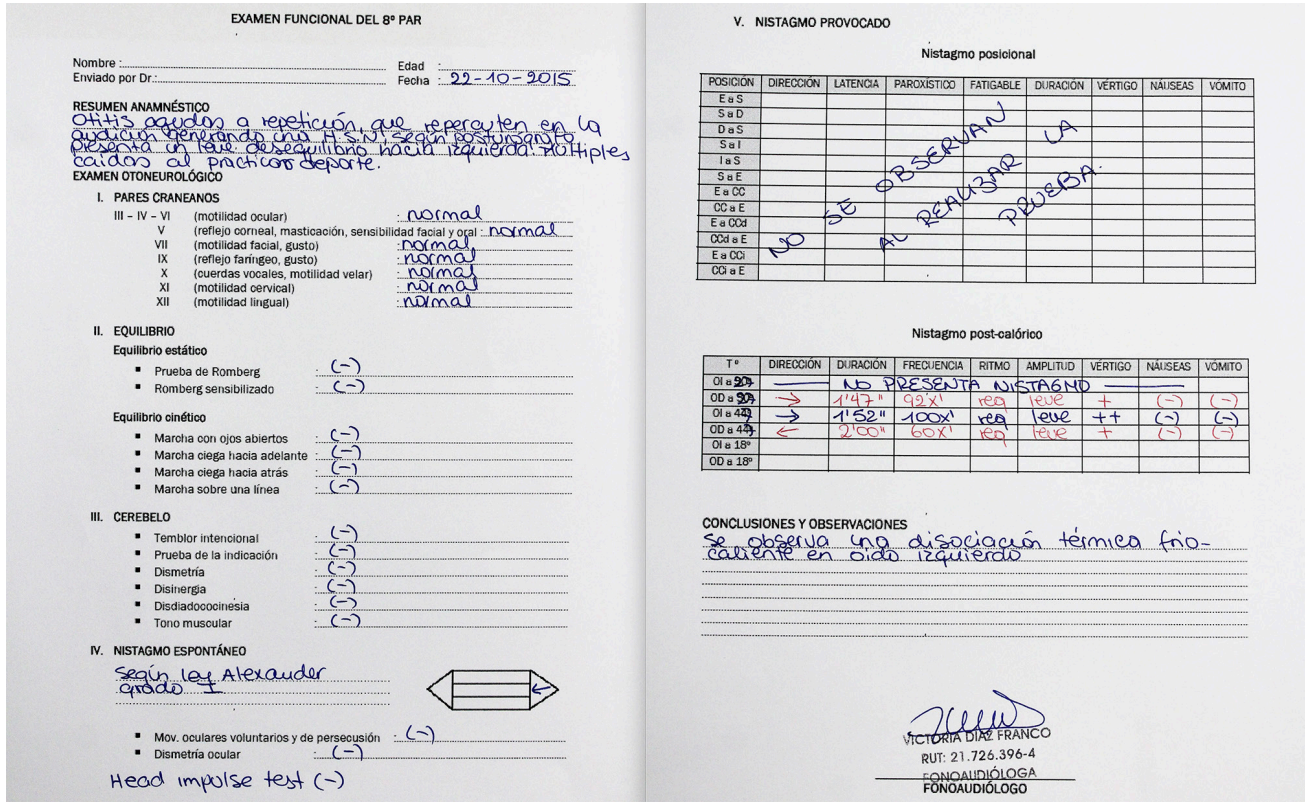 EXAMEN FUNCIONAL DEL 8º PAR
Nombre :
Edad :
Enviado por Dr.:
Fecha : 22-10-2015
RESUMEN ANAMNÉSTICO
Otitis agudas a repetición, que repercuten en la
audición generando una H.S.N. Según posturografo
presenta un leve desequilibrio hacia izquierda. Múltiples
caídas al practicar deporte.
EXAMEN OTONEUROLÓGICO
I. PARES CRANEANOS
III – IV – VI (motilidad ocular) : normal
V (reflejo corneal, masticación, sensibilidad facial y oral : normal
VII (motilidad facial, gusto) : normal
IX (reflejo faríngeo, gusto) : normal
X (cuerdas vocales, motilidad velar) : normal
XI (motilidad cervical) : normal
XII (motilidad lingual) : normal
II. EQUILIBRIO
Equilibrio estático
▪ Prueba de Romberg : (-)
▪ Romberg sensibilizado : (-)
Equilibrio cinético
▪ Marcha con ojos abiertos : (-)
▪ Marcha ciega hacia adelante : (-)
▪ Marcha ciega hacia atrás : (-)
▪ Marcha sobre una línea : (-)
III. CEREBELO
▪ Temblor intencional : (-)
▪ Prueba de la indicación : (-)
▪ Dismetría : (-)
▪ Disinergia : (-)
▪ Disdiadococinesia : (-)
▪ Tono muscular : (-)
IV. NISTAGMO ESPONTÁNEO
Según ley Alexander
grado I
←
▪ Mov. oculares voluntarios y de persecusión : (-)
▪ Dismetría ocular : (-)
Head impulse test (-)
V. NISTAGMO PROVOCADO
Nistagmo posicional
POSICIÓN DIRECCIÓN LATENCIA PAROXÍSTICO FATIGABLE DURACIÓN VÉRTIGO NÁUSEAS VÓMITO
E a S
S a D
D a S
S a I
I a S
S a E
E a CC
CC a E
E a CCd
CCd a E
E a CCi
CCi a E
NO SE OBSERVAN
AL REALIZAR LA
PRUEBA.
Nistagmo post-calórico
Tº DIRECCIÓN DURACIÓN FRECUENCIA RITMO AMPLITUD VÉRTIGO NÁUSEAS VÓMITO
OI a NO PRESENTA NISTAGMO
OD a → 1'47" 92x' reg leve + (-) (-)
OI a 44 → 1'52" 100x' reg leve ++ (-) (-)
OD a 44 ← 2'00" 60x' reg leve + (-) (-)
OI a 18º
OD a 18º
CONCLUSIONES Y OBSERVACIONES
Se observa una disociación térmica frio-
caliente en oido izquierdo
VICTORIA DIAZ FRANCO
RUT: 21.726.396-4
FONOAUDIÓLOGA
FONOAUDIÓLOGO